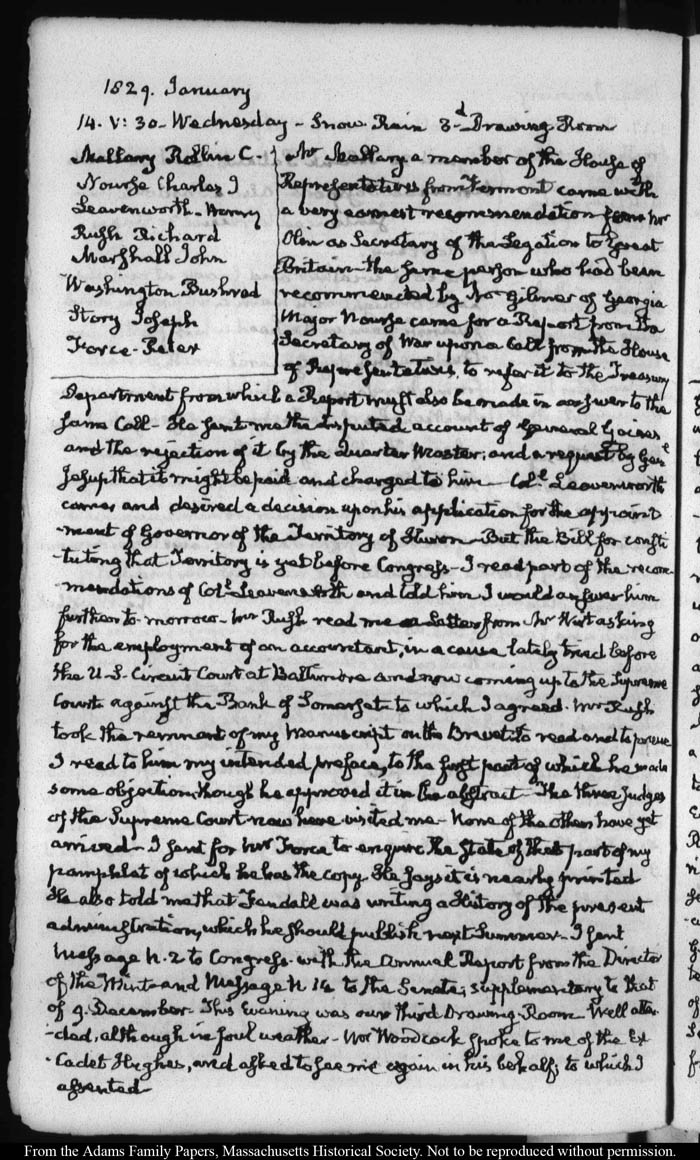 1829. January
14. V: 30. Wednesday - Snow Rain 3d Drawing Room
Mallary Rollin C.
Nourse Charles J
Leavenworth Henry
Rush Richard
Marshall John
Washington Bushrod
Story Joseph
Force Peter
Mr Mallary a member of the House of
Representatives from Vermont came with
a very earnest recommendation from Mr
Olin as Secretary of the Legation to Great
Britain the same person who had been
recommended by Mr Gilmer of Georgia
Major Nourse came for a Report from the
Secretary of War upon a Call from the House
of Representatives, to refer it to the Treasury
Department from which a Report must also be made in answer to the
same Call - He sent me the disputed account of General Gaines
and the rejection of it by the Quarter Master; and a request by Genl
Jesup that it might be paid and charged to him - Coll. Leavenworth
came, and desired a decision upon his application for the appoint
-ment of Governor of the Territory of Huron - But the Bill for consti
-tuting that Territory is yet before Congress - I read part of the recom
-mendations of Coll. Leavenworth and told him I would answer him
further to-morrow - Mr Rush read me a Letter from Mr Wirt asking
for the employment of an accountant, in a cause lately tried before
the U-S. Circuit Court at Baltimore and now coming up to the Supreme
Court against the Bank of Somerset to which I agreed. Mr Rush
took the remnant of my Manuscript on the Brevets to read and to peruse
I read to him my intended preface, to the first part of which he made
some objection though he approved it in the abstract - The three Judges
of the Supreme Court now here visited me - None of the others have yet
arrived - I sent for Mr Force to enquire the State of that part of my
pamphlet of which he has the copy. He says it is nearly printed
He also told me that Tendall was writing a History of the present
administration, which he should publish next Summer - I sent
Message N. 2 to Congress with the Annual Report from the Director
of the Mint and Message N 14 to the Senate, supplementary to that
of 9. December - This Evening was our third Drawing Room - Well atten
-ded, although in foul weather - Mr Woodcock spoke to me of the Ex
-Cadet Hughes, and asked to see me again in his behalf; to which I
assented -
From the Adams Family Papers, Massachusetts Historical Society. Not to be reproduced without permission.